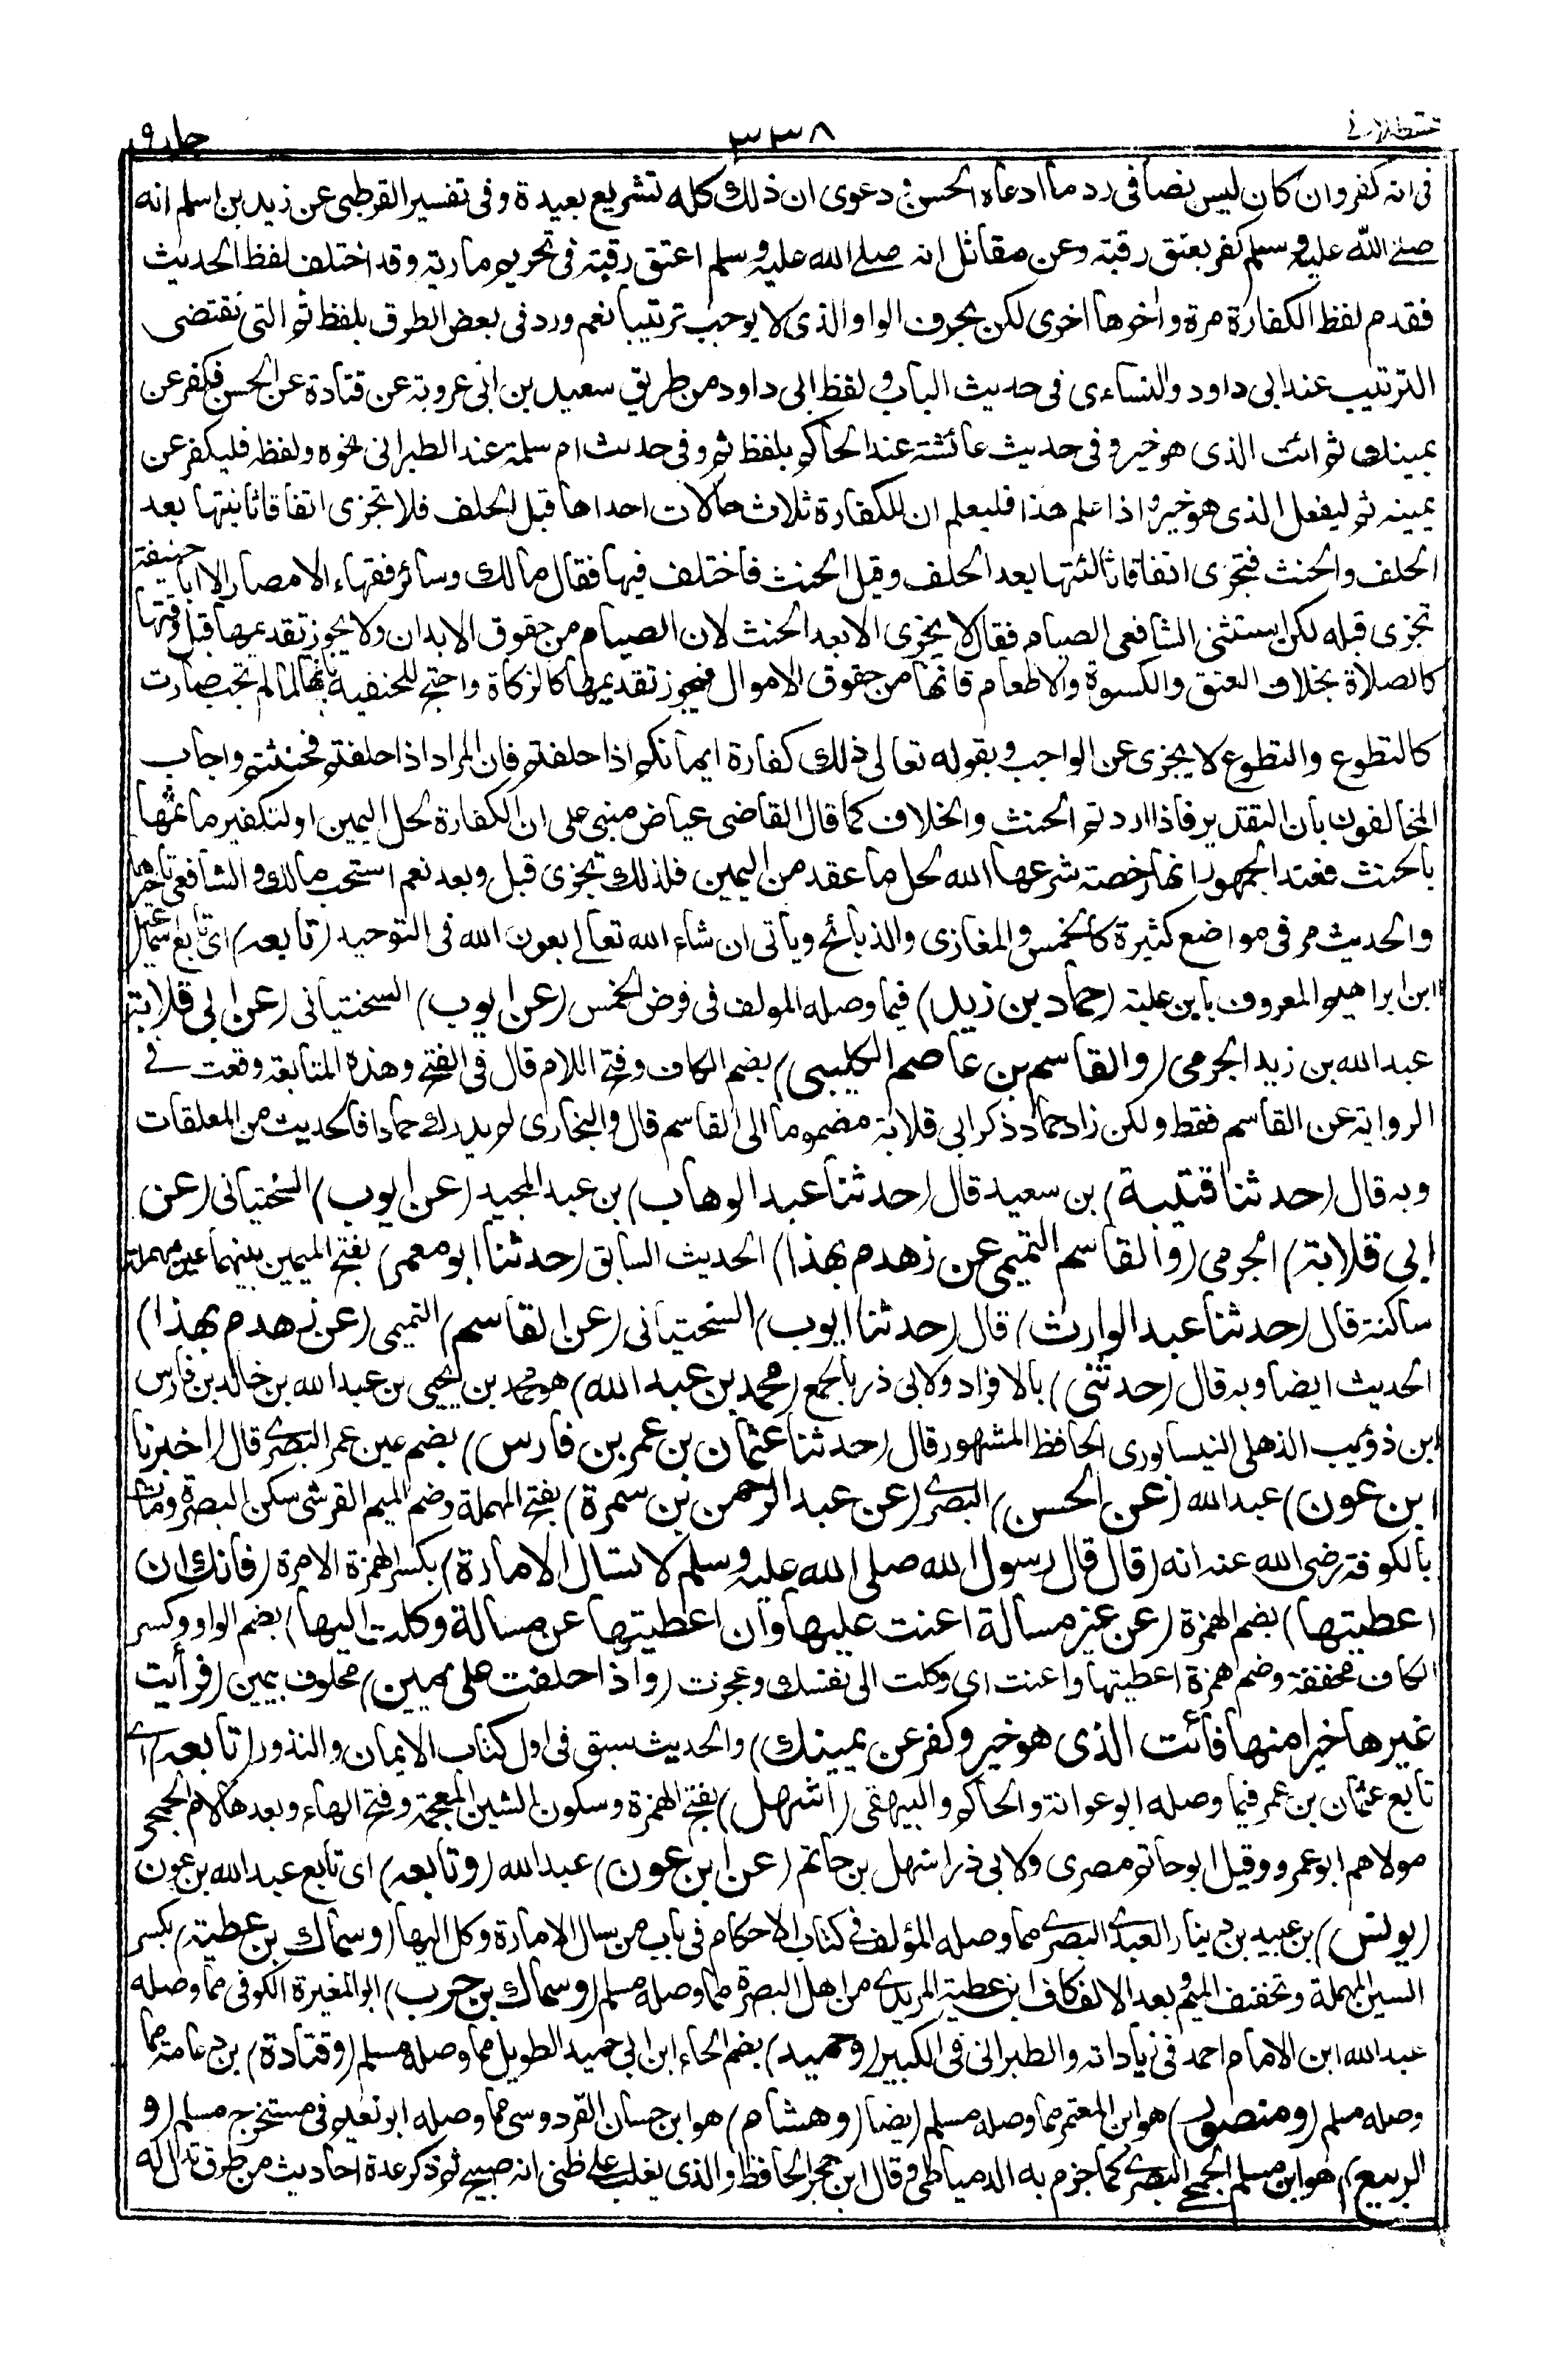 قسطلانی
٣٣٨
جلد ٩
فى انه كفر وان كان ليس نصا فى رد ما ادعاه الحسن و دعوى ان ذلك كله تشريع بعيدة وفى تفسير القرطبى عن زيد بن اسلم انه
صلے الله عليه و سلم كفر بعتق رقبة وعن مقاتل انه صلے الله عليه و سلم اعتق رقبة فى تحريم مارية وقد اختلف لفظ الحديث
فقدم لفظ الكفارة مرة واخرها اخرى لكن بحرف الواو الذى لا يوجب ترتيبا نعم ورد فى بعض الطرق بلفظ ثم التى تقتضى
الترتيب عند ابى داود والنساءى فى حديث الباب و لفظ ابى داود من طريق سعيد بن ابى عروبة عن قتادة عن الحسن فكفر عن
يمينك ثم ائت الذى هو خير و فى حديث عائشة عند الحاكم بلفظ ثم وفى حديث ام سلمة عند الطبرانى نحوه ولفظه فليكفر عن
يمينه ثم ليفعل الذى هو خير و اذا علم هذا فليعلم ان للكفارة ثلاث حالات احداها قبل الحلف فلا تجزى اتفاقا ثانيتها بعد
الحلف والحنث فتجزى اتفاقا ثالثتها بعد الحلف وقبل الحنث فاختلف فيها فقال مالك وسائر فقهاء الامصار الا ابا حنيفة
تجزى قبله لكن استثنى الشافعى الصيام فقال لا يجزى الا بعد الحنث لان الصيام من حقوق الابدان ولا يجوز تقديمها قبل وقتها
كالصلاة بخلاف العتق والكسوة والاطعام فانها من حقوق الاموال فيجوز تقديمها كالزكاة واحتج للحنفية بانها لما لم تجب صارت
كالتطوع والتطوع لا يجزى عن الواجب و بقوله تعالى ذلك كفارة ايمانكم اذا حلفتم فان المراد اذا حلفتم فحنثتم واجاب
المخالفون بان التقدير فاذا اردتم الحنث والخلاف كما قال القاضى عياض مبنى على ان الكفارة لحل اليمين او لتكفير مأثمها
بالحنث فعند الجمهور انها رخصة شرعها الله لحل ما عقد من اليمين فلذلك تجزى قبل وبعد نعم استحب مالك و الشافعى تاخيرها
والحديث مر فى مواضع كثيرة كالخمس و المغازى والذبائح وياتى ان شاء الله تعالے بعون الله فى التوحيد (تابعه) اى تابع اسماعيل
ابن ابراهيم المعروف بابن علية (حماد بن زيد) فيما وصله المولف فى فرض الخمس (عن ايوب) السختيانى (عن ابى قلابة)
عبد الله بن زيد الجرمى (والقاسم بن عاصم الكليبى) بضم الكاف وفتح اللام قال فى الفتح وهذه المتابعة وقعت فے
الرواية عن القاسم فقط ولكن زاد حماد ذكر ابى قلابة مضموما الى القاسم قال و البخارى لم يدرك حمادا فالحديث من المعلقات
وبه قال (حدثنا قتيبة) بن سعيد قال (حدثنا عبد الوهاب) بن عبد المجيد (عن ايوب) السختيانى (عن
ابى قلابة) الجرمى (والقاسم التميمى عن زهدم بهذا) الحديث السابق (حدثنا ابو معمر) بفتح الميمين بينهما عين مهملة
ساكنة قال (حدثنا عبد الوارث) قال (حدثنا ايوب) السختيانى (عن القاسم) التميمى (عن زهدم بهذا)
الحديث ايضا وبه قال (حدثنى) بالافراد ولابى ذر بالجمع (محمد بن عبد الله) هو محمد بن يحيى بن عبد الله بن خالد بن فارس
ابن ذؤيب الذهلى النيسابورى الحافظ المشهور قال (حدثنا عثمان بن عمر بن فارس) بضم عين عمر البصرے قال (اخبرنا
ابن عون) عبد الله (عن الحسن) البصرے (عن عبد الرحمن بن سمرة) بفتح المهملة وضم الميم القرشى سكن البصرة ومات
بالكوفة رضى الله عنه انه (قال قال رسول الله صلى الله عليه و سلم لا تسال الامارة) بكسر الهمزة الامرة (فانك ان
اعطيتها) بضم الهمزة (عن غير مسالة اعنت عليها وان اعطيتها عن مسالة وكلت اليها) بضم الواو وكسر
الكاف مخففة وضم همزة اعطيتها واعنت اى وكلت الى نفسك وعجزت (واذا حلفت على يمين) محلوف بيمين (فرأيت
غيرها خيرا منها فأئت الذى هو خير وكفر عن يمينك) والحديث سبق فى اول كتاب الايمان والنذور (تابعه) اے
تابع عثمان بن عمر فيما وصله ابو عوانة والحاكم والبيهقى (اشهل) بفتح الهمزة وسكون الشين المعجمة وفتح الهاء وبعدها لام الجمحى
مولاهم ابو عمرو وقيل ابو حاتم مصرى ولابى ذر اشهل بن حاتم (عن ابن عون) عبد الله (وتابعه) اى تابع عبد الله بن عون
(يونس) بن عبيد بن دينار العبدے البصرے مما وصله المؤلف فے كتاب الاحكام فى باب من سال الامارة وكل اليها (وسماك بن عطية) بكسر
السين المهملة وتخفيف الميم و بعد الالف كاف ابن عطية المربدے من اهل البصرة مما وصله مسلم (وسماك بن حرب) ابو المغيرة الكوفى مما وصله
عبد الله ابن الامام احمد فى زياداته والطبرانى فى الكبير (وحميد) بضم الحاء ابن ابى حميد الطويل مما وصله مسلم (وقتادة) بن دعامة مما
وصله مسلم (ومنصور) هو ابن المعتمر مما وصله مسلم (يضا (وهشام) هو ابن حسان القردوسى مما وصله ابو نعيم فى مستخرج مسلم (و
الربيع) هو ابن مسلم الجمحے البصرے كما جزم به الدمياطى و قال ابن حجر الحافظ والذى يغلب على ظنى انه صبيح ثم ذكر عدة احاديث من طرق تدل له